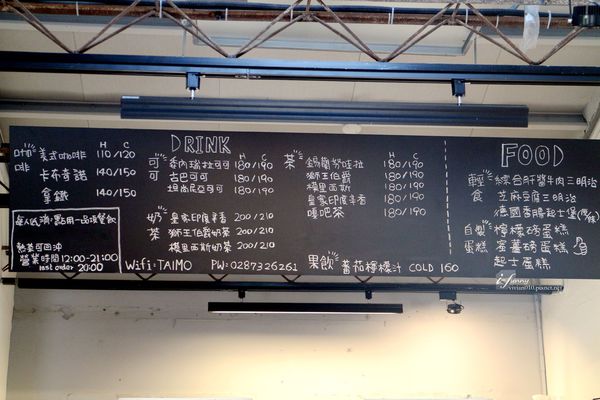 DRINK
H C
咖啡
美式咖啡 110/120
卡布奇諾 140/150
拿鐵 140/150
每人低消:點用一品項餐飲
熱茶可回沖
營業時間12:00-21:00
last order 20:00
H C
可可
委內瑞拉可可 180/190
古巴可可 180/190
坦尚尼亞可可 180/190
奶茶
皇家印度辛香 200/210
獅王伯爵奶茶 200/210
模里西斯奶茶 200/210
Wifi:TAIMO PW:0287326261
H C
茶
錫蘭努哇拉 180/190
獅王伯爵 180/190
模里西斯 180/190
皇家印度辛香 180/190
嗎吧茶 180/190
果飲 蕃茄檸檬汁 COLD 160
FOOD
輕食
綜合肝醬牛肉三明治
芝麻豆腐三明治
德國香腸起士堡
自製蛋糕
檸檬磅蛋糕
蜜薑磅蛋糕
起士蛋糕